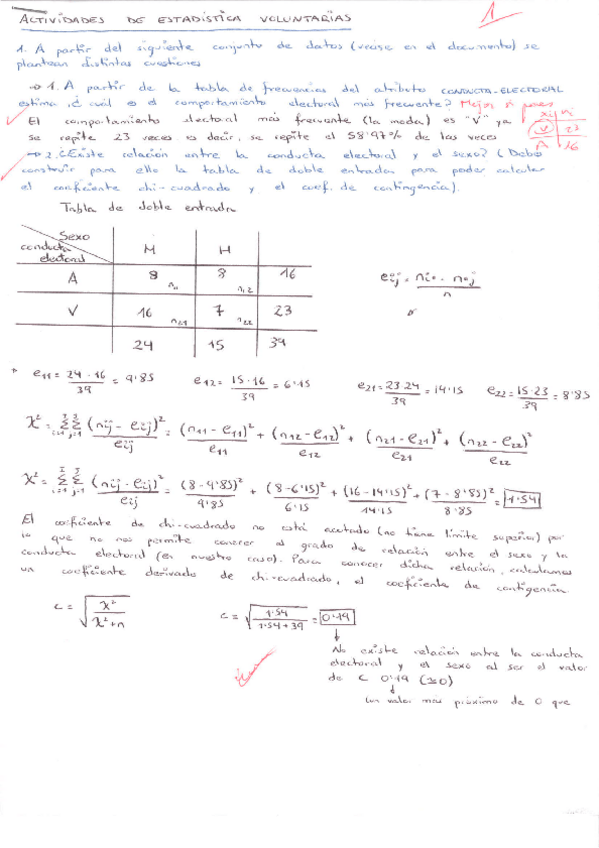 ACTIVIDADES DE ESTADÍSTICA VOLUNTARIAS
1
1. A partir del siguiente conjunto de datos (véase en el documento) se
plantean distintas cuestiones
→ 1. A partir de la tabla de frecuencias del atributo CONDUCTA-ELECTORAL
estima ¿cuál es el comportamiento electoral más frecuente? Mejor si pones
El comportamiento electoral más frecuente (la moda) es "V" ya
xi ni
V 23
A 16
se repite 23 veces es decir, se repite el 58'97% de las veces
→ 2. ¿Existe relación entre la conducta electoral y el sexo? (Debes
construir para ello la tabla de doble entrada para poder calcular
el coeficiente chi-cuadrado y el coef. de contingencia).
Tabla de doble entrada
Sexo
conducta electoral
M H
A 8 n11 8 n12 16
V 16 n21 7 n22 23
24 15 39
eij = ni• · n•j / n
* e11 = 24·16 / 39 = 9'85 e12 = 15·16 / 39 = 6'15 e21 = 23·24 / 39 = 14'15 e22 = 15·23 / 39 = 8'85
χ² = Σ Σ (nij - eij)² / eij = (n11 - e11)² / e11 + (n12 - e12)² / e12 + (n21 - e21)² / e21 + (n22 - e22)² / e22
χ² = Σ Σ (nij - eij)² / eij = (8 - 9'85)² / 9'85 + (8 - 6'15)² / 6'15 + (16 - 14'15)² / 14'15 + (7 - 8'85)² / 8'85 = 1'54
El coeficiente de chi-cuadrado no está acotado (no tiene límite superior) por
lo que no nos permite conocer el grado de relación entre el sexo y la
conducta electoral (en nuestro caso). Para conocer dicha relación, calculamos
un coeficiente derivado de chi-cuadrado, el coeficiente de contigencia.
c = √ χ² / χ²+n c = √ 1'54 / 1'54+39 = 0'19
No existe relación entre la conducta
electoral y el sexo al ser el valor
de C 0'19 (≃0)
un valor más próximo de 0 que